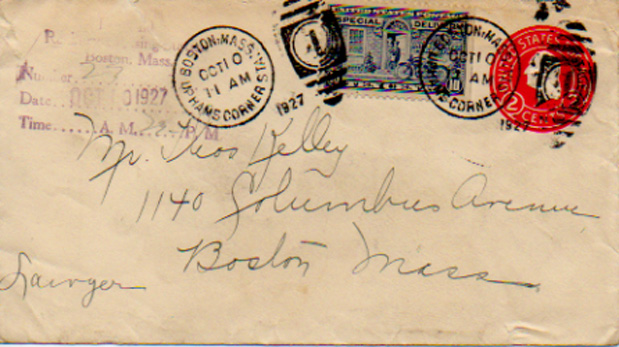 Boston, Mass.
Number
Date OCT 10 1927
Time......A. M......P. M.
BOSTON, MASS.
OCT 10
11 AM
UPHAMS CORNER STA.
1927
1
UNITED STATES POSTAGE
SPECIAL DELIVERY
10
BOSTON, MASS.
OCT 10
11 AM
UPHAMS CORNER
1927
UNITED STATES
2 CENTS
Mr. Thos Kelley
1140 Columbus Avenue
Boston Mass